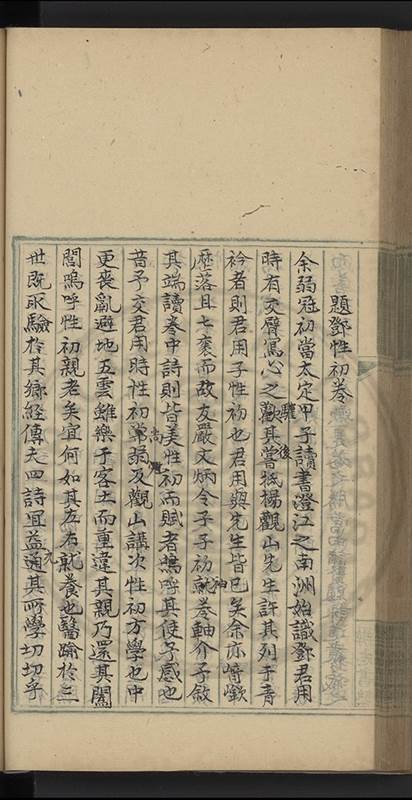 題鄧性初卷
余弱冠初當太定甲子讀書澄江之南洲始識鄧君用
時有交臂寫心之歡其嘗抵楊觀山先生許其列于青
驩後
衿者則君用子性初也君用與先生皆已矣余亦崎嶔
歷落且七褱而故友嚴文炳令子子初就卷軸介予敘
神
其端讀卷中詩則皆美性初而賦者嗚呼真使予感也
昔予交君用時性初弟弱及觀山講次性初方學也中
尚
更喪亂避地五雲雖樂于客土而重違其親乃還其闔
閭嗚呼性初親老矣宜何如其左右就養也醫踰於三
世既取驗於其鄉經傳夫四詩宜益通其所學切切乎
尤